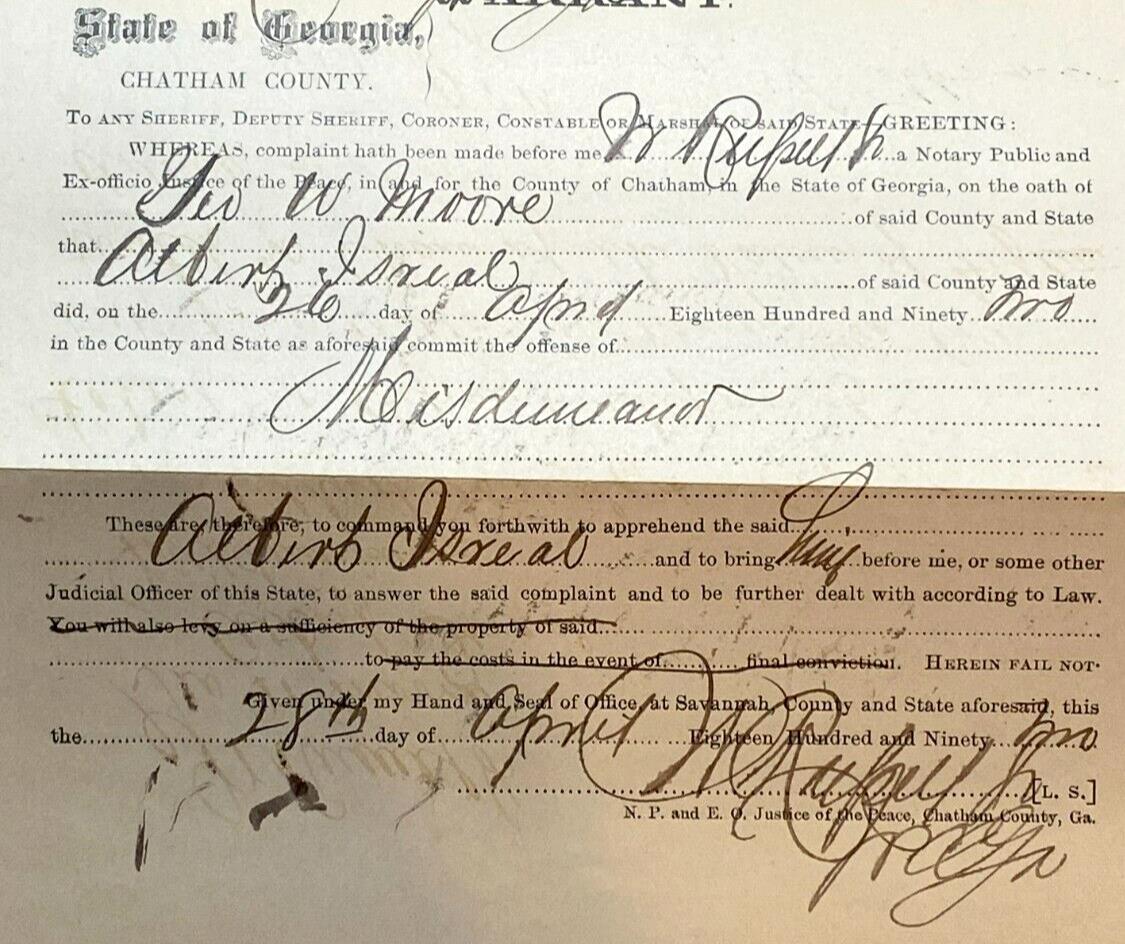 WARRANT.
State of Georgia,
CHATHAM COUNTY.
TO ANY SHERIFF, DEPUTY SHERIFF, CORONER, CONSTABLE OR MARSHAL OF SAID STATE—GREETING:
WHEREAS, complaint hath been made before me W Russell Jr a Notary Public and
Ex-officio Justice of the Peace, in and for the County of Chatham, in the State of Georgia, on the oath of
Geo W Moore of said County and State
that
Albert Isreal of said County and State
did, on the 26 day of April Eighteen Hundred and Ninety two
in the County and State as aforesaid commit the offense of
Misdemeanor
These are therefore, to command you forthwith to apprehend the said
Albert Isreal and to bring him before me, or some other
Judicial Officer of this State, to answer the said complaint and to be further dealt with according to Law.
You will also levy on a sufficiency of the property of said
to pay the costs in the event of final conviction. HEREIN FAIL NOT.
Given under my Hand and Seal of Office, at Savannah, County and State aforesaid, this
the 28th day of April Eighteen Hundred and Ninety two
W Russell Jr [L. S.]
N. P. and E. O. Justice of the Peace, Chatham County, Ga.